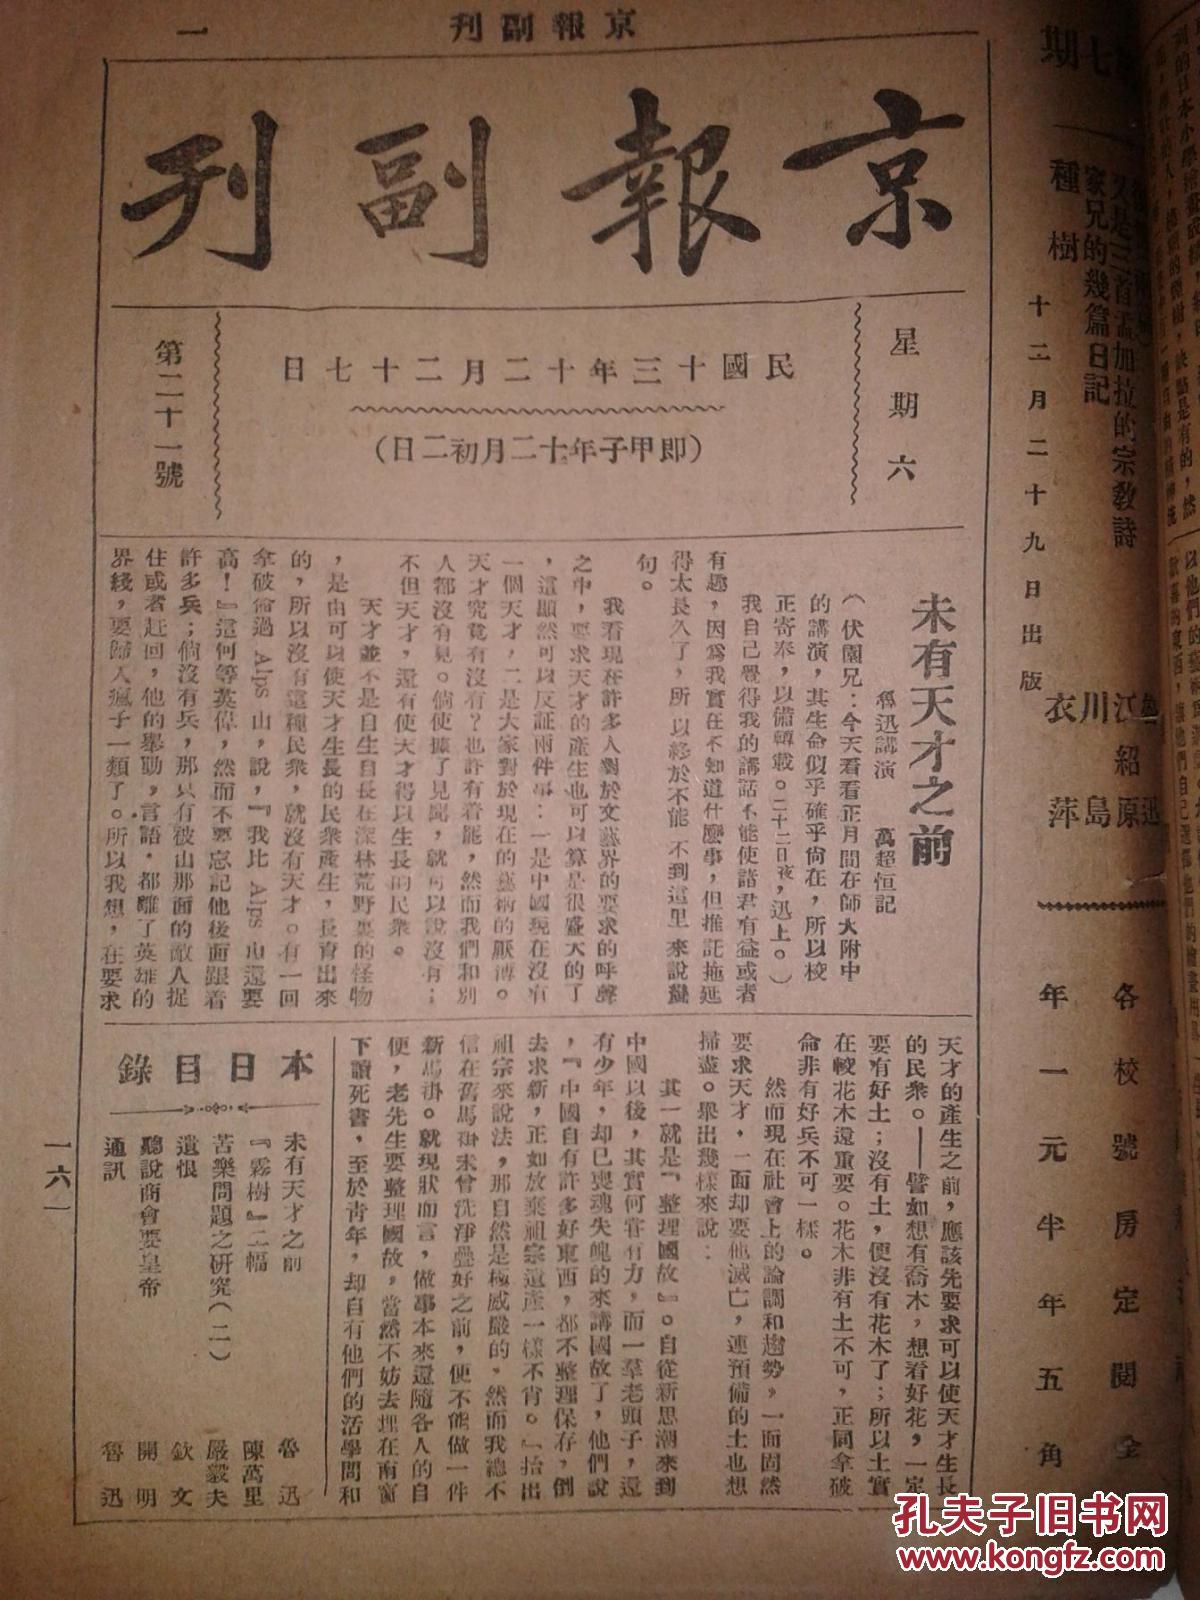 京報副刊
一
京報副刊
星期六
民國十三年十二月二十七日
（即甲子年十二月初二日）
第二十一號
未有天才之前
魯迅講演　萬超恒記
（伏園兄：今天看看正月間在師大附中
的講演，其生命似乎確乎尙在，所以校
正寄奉，以備轉載。二十二日夜，迅上。）
我自己覺得我的講話不能使諸君有益或者
有趣，因爲我實在不知道什麽事，但推託拖延
得太長久了，所以終於不能不到這里來說幾
句。
我看現在許多人對於文藝界的要求的呼聲
之中，要求天才的產生也可以算是很盛大的了
，這顯然可以反証兩件事：一是中國現在沒有
一個天才，二是大家對於現在的藝術的厭薄。
天才究竟有沒有？也許有着罷，然而我們和別
人都沒有見。倘使據了見聞，就可以說沒有；
不但天才，還有使天才得以生長的民衆。
天才並不是自生自長在深林荒野裏的怪物
，是由可以使天才生長的民衆產生，長育出來
的，所以沒有這種民衆，就沒有天才。有一回
拿破侖過Alps山，說，『我比Alps山還要
高！』這何等英偉，然而不要忘記他後面跟着
許多兵；倘沒有兵，那只有被山那面的敵人捉
住或者赶回，他的舉動，言語，都離了英雄的
界綫，要歸入瘋子一類了。所以我想，在要求
天才的產生之前，應該先要求可以使天才生長
的民衆。——譬如想有喬木，想看好花，一定
要有好土；沒有土，便沒有花木了；所以土實
在較花木還重要。花木非有土不可，正同拿破
侖非有好兵不可一樣。
然而現在社會上的論調和趨勢，一面固然
要求天才，一面却要他滅亡，連預備的土也想
掃盡。舉出幾樣來說：
其一就是『整理國故』。自從新思潮來到
中國以後，其實何嘗有力，而一羣老頭子，還
有少年，却已喪魂失魄的來講國故了，他們說
，『中國自有許多好東西，都不整理保存，倒
去求新，正如放棄祖宗遺產一樣不肖。』抬出
祖宗來說法，那自然是極威嚴的，然而我總不
信在舊馬褂未曾洗淨疊好之前，便不能做一件
新馬褂。就現狀而言，做事本來還隨各人的自
便，老先生要整理國故，當然不妨去埋在南窗
下讀死書，至於青年，却自有他們的活學問和
本日目錄
未有天才之前　魯迅
『霧樹』二幅　陳萬里
苦樂問題之研究（二）　嚴毅夫
遺恨　欽文
聽說商會要皇帝　開明
通訊　魯迅
一六一
七期
又是三首孟加拉的宗教詩
家兄的幾篇日記
種樹
江紹原
川島
衣萍
十二月二十九日出版
各校號房定閱全
年一元半年五角
孔夫子旧书网
www.kongfz.com